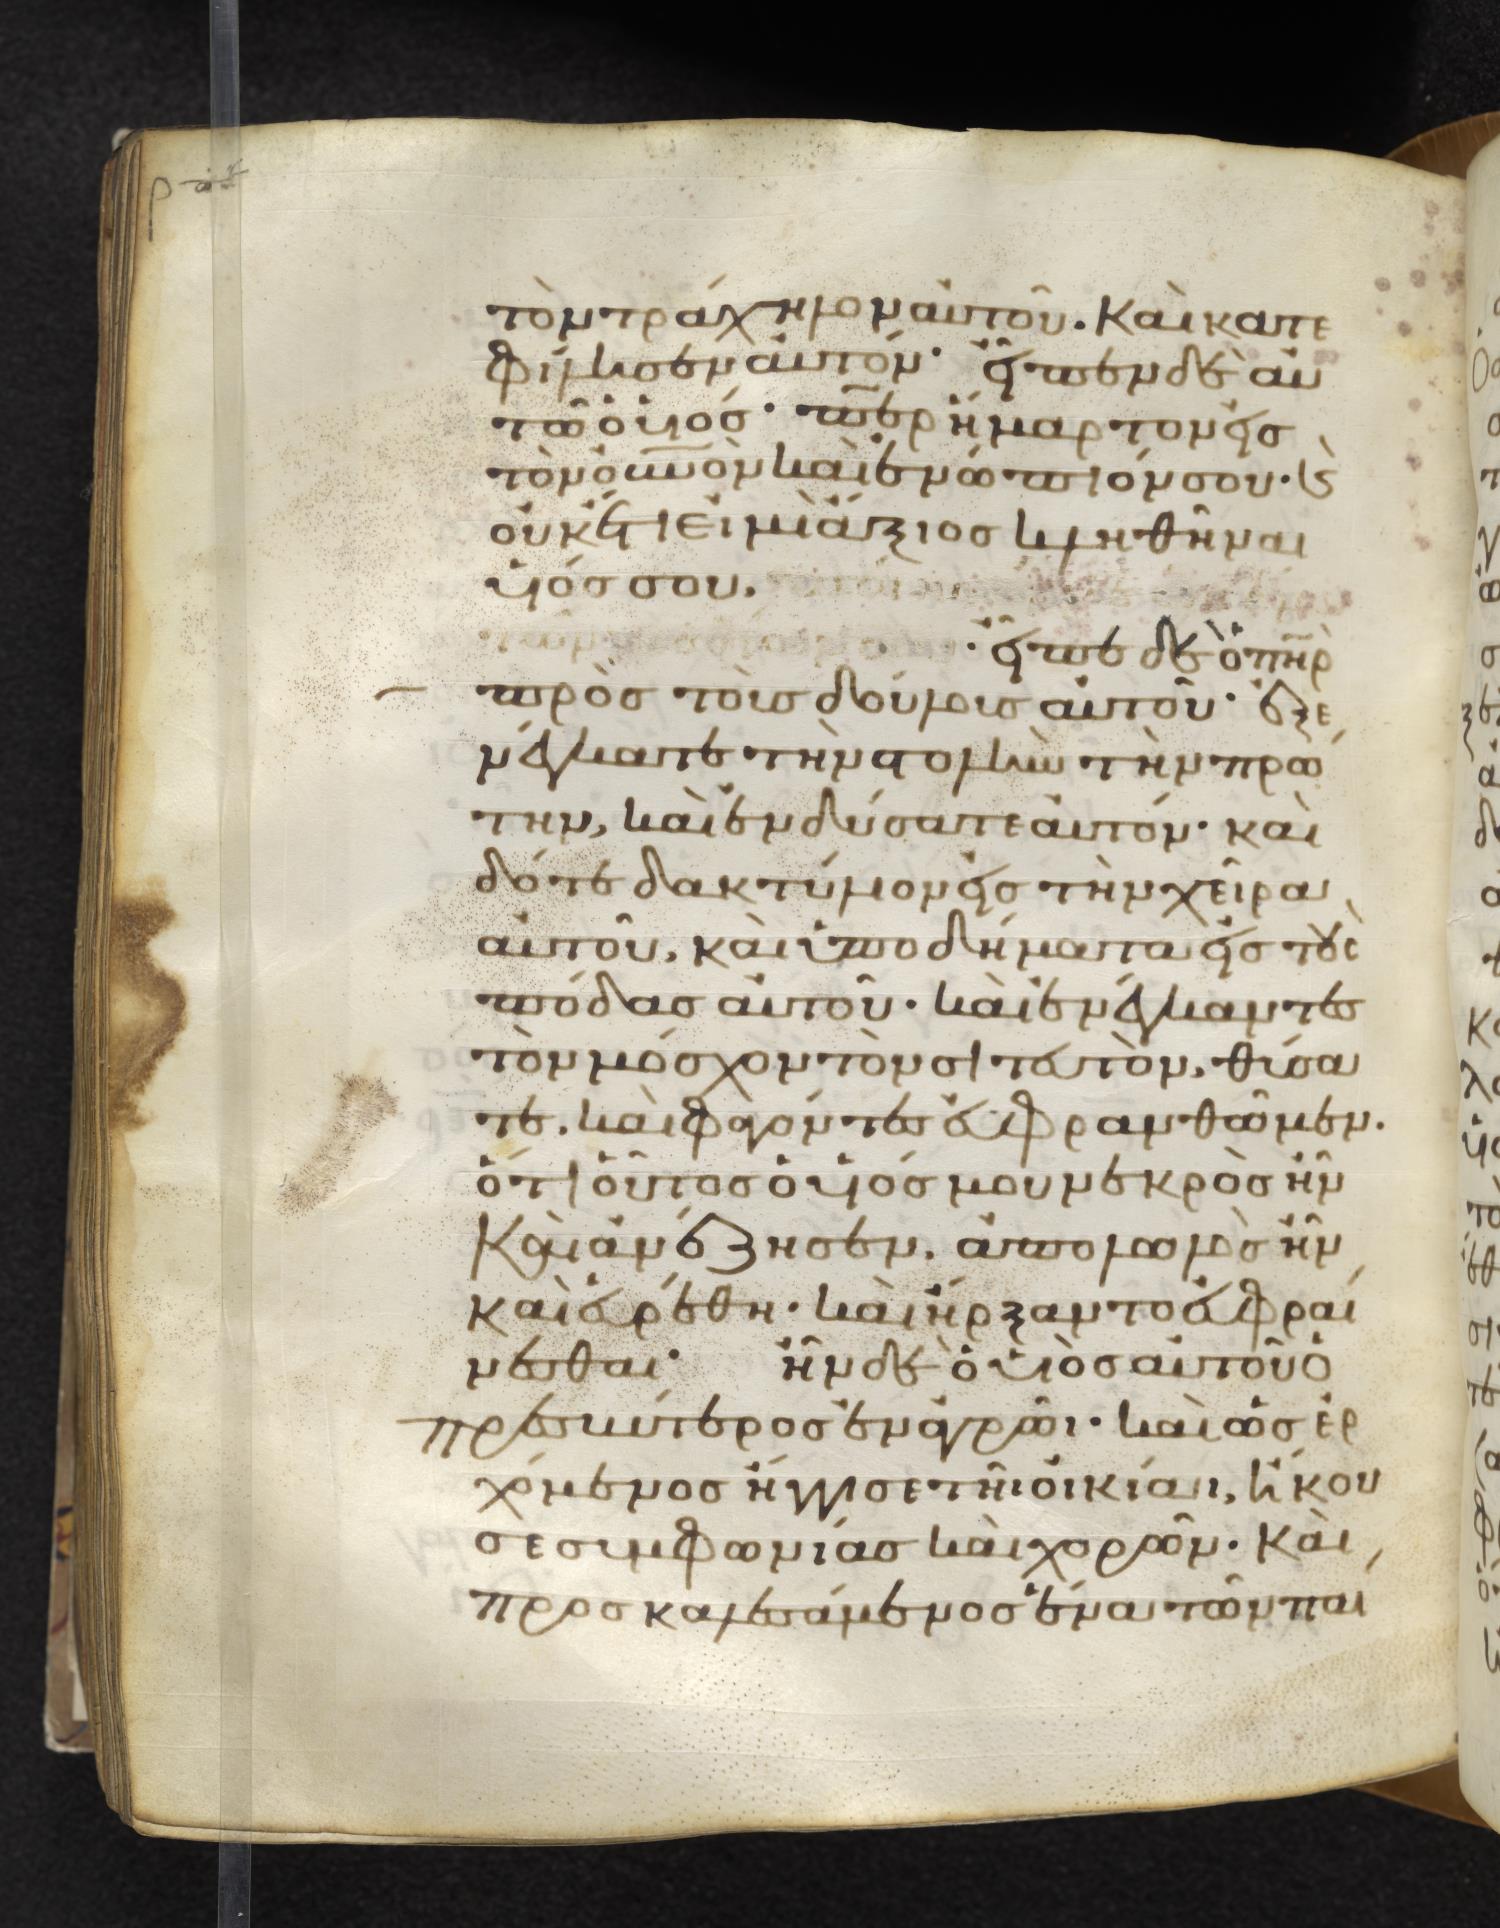 τὸν τράχηλον αὐτοῦ. Καὶ κατε
φίλησεν αὐτόν· εἶπεν δὲ αὐ
τῶ ὁ υἱός· πε̅ρ ἥμαρτον εἰς
τὸν ου̅νὸν καὶ ἐνώπιόν σου· κ
οὐκέτι εἰμὶ ἄξιος κληθῆναι
υἱός σου.
· εἶπε δὲ ὁ πη̅ρ
πρὸς τοὺς δούλους αὐτοῦ· ἐξε
νέγκατε τὴν στολὴν τὴν πρώ
την, καὶ ἐνδύσατε αὐτόν· καὶ
δότε δακτύλιον εἰς τὴν χεῖρα
αὐτοῦ, καὶ ὑποδήματα εἰς τοὺς
πόδας αὐτοῦ· καὶ ἐνέγκαντες
τὸν μόσχον τὸν σιτευτὸν, θύσα
τε. καὶ φαγόντες εὐφρανθῶμεν.
ὅτι οὗτος ὁ υἱός μου νεκρὸς ἦν
Καὶ ἀνέζησεν. ἀπολωλὸς ἦν
καὶ εὑρέθη· καὶ ἤρξαντο εὐφραί
νεσθαι· ἦν δὲ ὁ υἱὸς αὐτοῦ ὁ
πρεσβύτερος ἐν ἀγρῶι· καὶ ὡς ἐρ
χόμενος ἤγγισε τῆι οἰκίαι, ἤκου
σε συμφωνίας καὶ χορῶν. Καὶ
προσκαλεσάμενος ἕνα τῶν παί